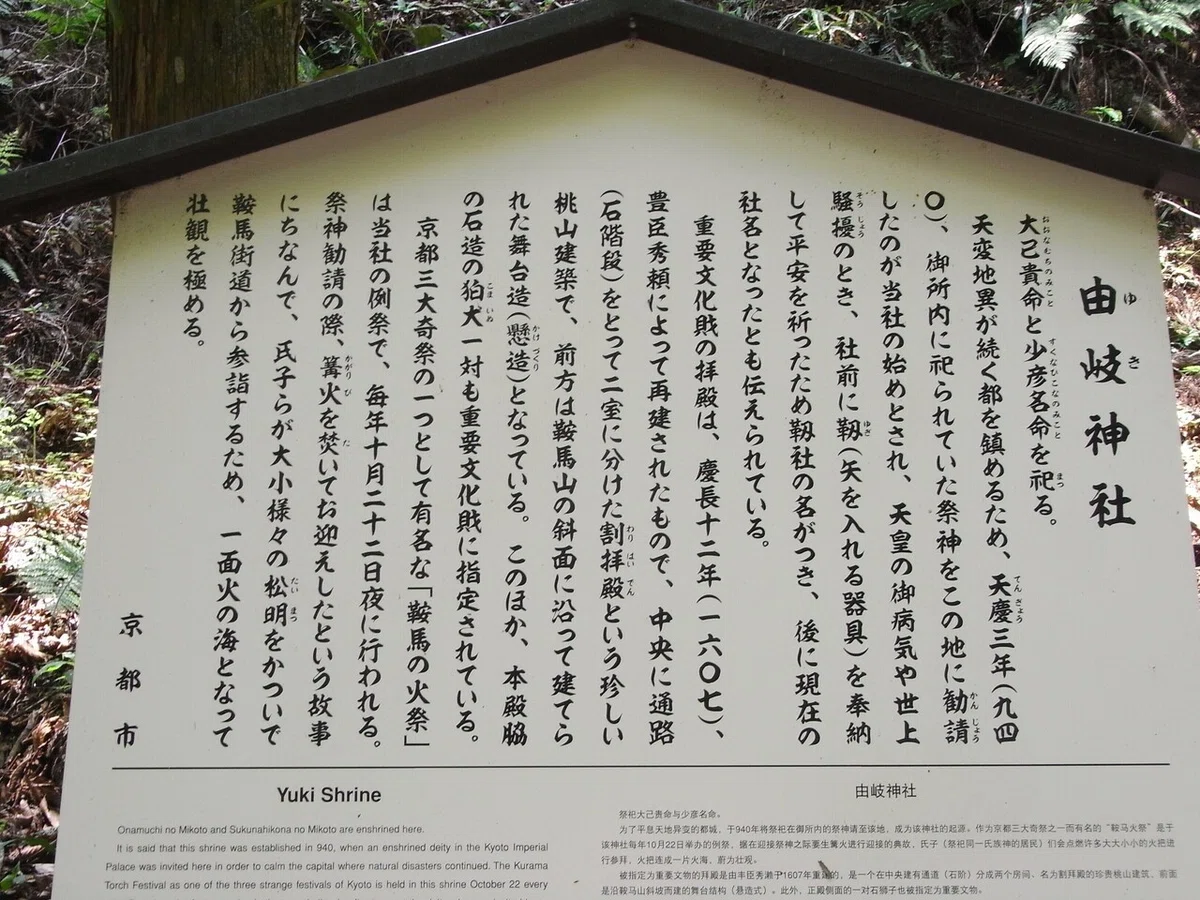 由岐神社
ゆき
大己貴命と少彦名命を祀る。
おおなむちのみこと すくなひこなのみこと まつ
天変地異が続く都を鎮めるため、天慶三年(九四
てんぎょう
〇)、御所内に祀られていた祭神をこの地に勧請
かんじょう
したのが当社の始めとされ、天皇の御病気や世上
騒擾のとき、社前に靱(矢を入れる器具)を奉納
そうじょう ゆぎ
して平安を祈ったため靱社の名がつき、後に現在の
社名となったとも伝えられている。
重要文化財の拝殿は、慶長十二年(一六〇七)、
豊臣秀頼によって再建されたもので、中央に通路
(石階段)をとって二室に分けた割拝殿という珍しい
わりはいでん
桃山建築で、前方は鞍馬山の斜面に沿って建てら
れた舞台造(懸造)となっている。このほか、本殿脇
かけづくり
の石造の狛犬一対も重要文化財に指定されている。
こまいぬ
京都三大奇祭の一つとして有名な「鞍馬の火祭」
は当社の例祭で、毎年十月二十二日夜に行われる。
祭神勧請の際、篝火を焚いてお迎えしたという故事
かがりび た
にちなんで、氏子らが大小様々の松明をかついで
たいまつ
鞍馬街道から参詣するため、一面火の海となって
壮観を極める。
京都市
Yuki Shrine
Onamuchi no Mikoto and Sukunahikona no Mikoto are enshrined here.
It is said that this shrine was established in 940, when an enshrined deity in the Kyoto Imperial
Palace was invited here in order to calm the capital where natural disasters continued. The Kurama
Torch Festival as one of the three strange festivals of Kyoto is held in this shrine October 22 every
由岐神社
祭祀大己贵命与少彦名命。
为了平息天地异变的都城，于940年将祭祀在御所内的祭神请至该地，成为该神社的起源。作为京都三大奇祭之一而有名的“鞍马火祭”是于
该神社每年10月22日举办的例祭，据在迎接祭神之际要生篝火进行迎接的典故，氏子（祭祀同一氏族神的居民）们会点燃许多大大小小的火把进
行参拜，火把连成一片火海，蔚为壮观。
被指定为重要文物的拜殿是由丰臣秀赖于1607年重建的，是一个在中央建有通道（石阶）分成两个房间、名为割拜殿的珍贵桃山建筑，前面
是沿鞍马山斜坡而建的舞台结构（悬造式）。此外，正殿侧面的一对石狮子也被指定为重要文物。